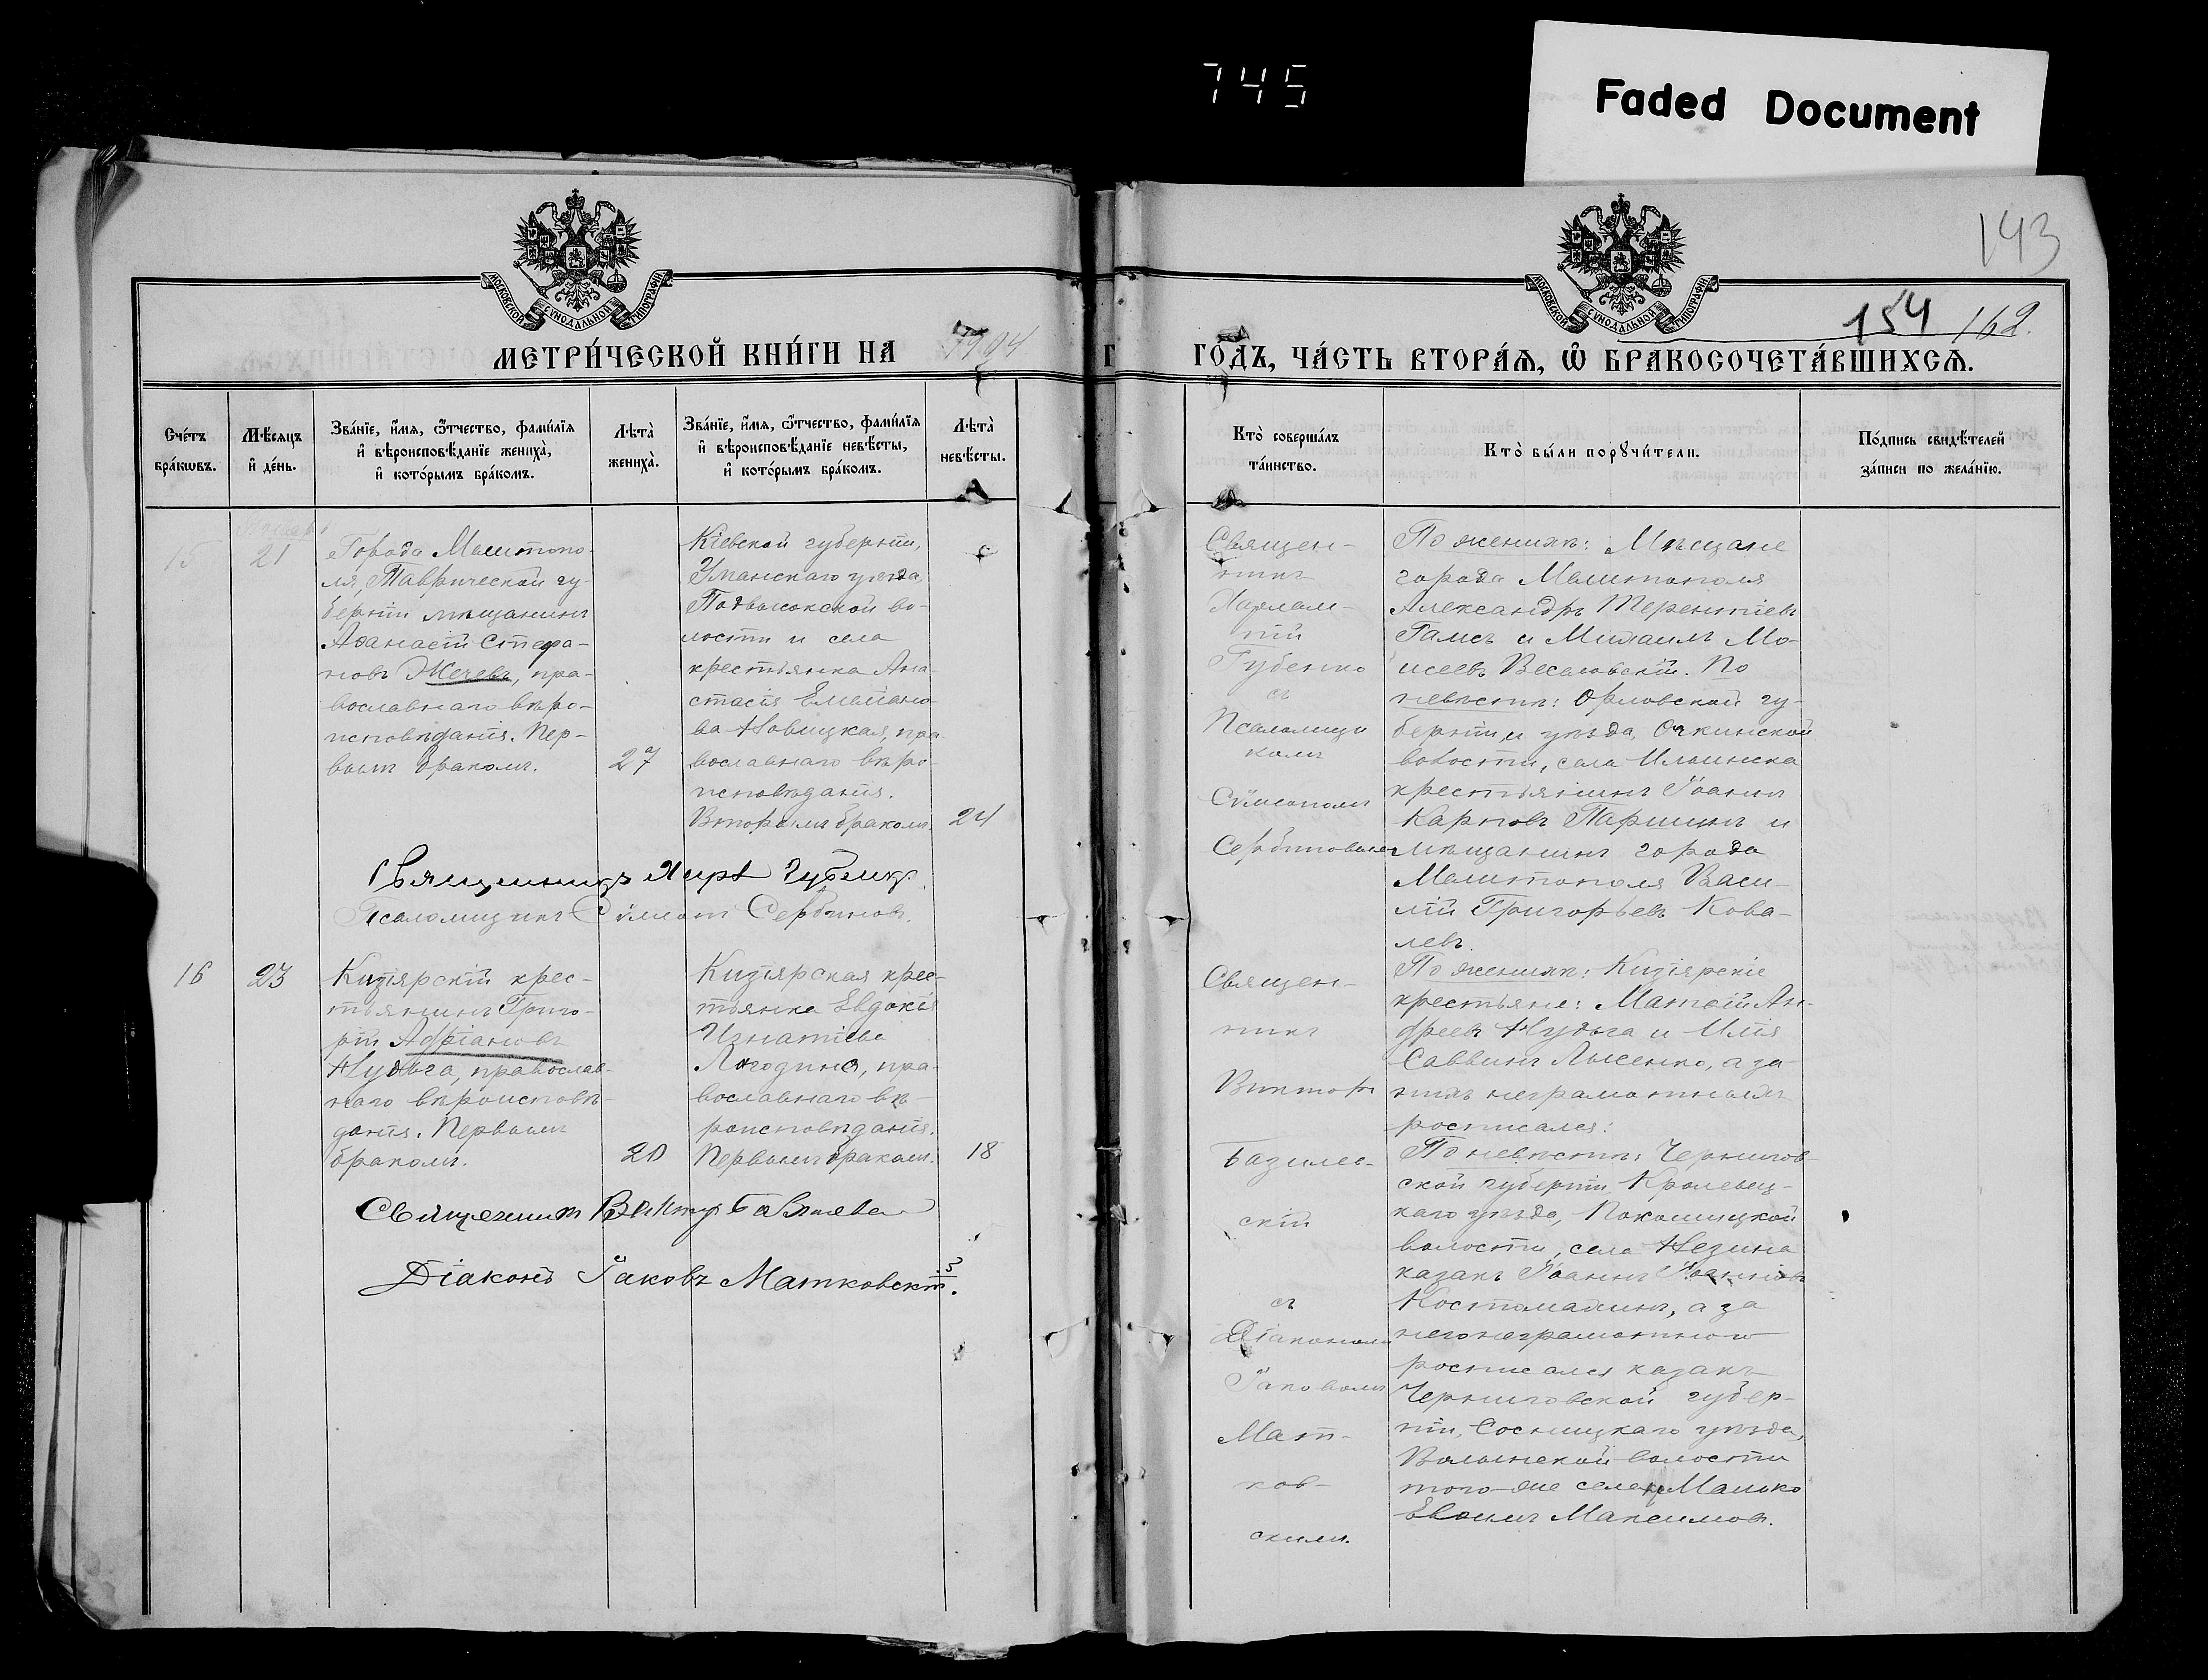 745
Faded Document
143
154 162.
МОСКОВСКОЙ СѴНОДАЛЬНОЙ ТИПОГРАФІИ
МОСКОВСКОЙ СѴНОДАЛЬНОЙ ТИПОГРАФІИ
МЕТРИ́ЧЕСКОЙ КНИ́ГИ НА
ГО́ДЪ, ЧА́СТЬ ВТОРА́Ѧ, Ѽ БРАКОСОЧЕТА́ВШИХСѦ.
Сче́тъ
бра́кѡвъ.
Мѣ́сяцъ
и҆ де́нь.
Зва́нїе, и҆́мѧ, ѻ҆́тчество, фами́лїѧ
и҆ вѣроисповѣ́данїе жениха̀,
и҆ кото́рымъ бра́комъ.
Лѣта̀
жениха̀.
Зва́нїе, и҆́мѧ, ѻ҆́тчество, фами́лїѧ
и҆ вѣроисповѣ́данїе невѣ́сты,
и҆ кото́рымъ бра́комъ.
Лѣта̀
невѣ́сты.
Кто̀ соверша́лъ
та́инство.
Кто̀ бы́ли порꙋчи́тели.
По́дпись свидѣ́телей
за́писи по жела́нїю.
15
Января
21
Города Мелитопо-
ля, Таврической гу-
берніи мѣщанинъ
Аѳанасій Стефа-
новъ Жечевъ, пра-
вославнаго вѣро-
исповѣданія. Пер-
вымъ бракомъ.
27
Кіевской губерніи,
Уманскаго уѣзда,
Подвысокской во-
лости и села
крестьянка Ана-
стасія Емельяно-
ва Новицкая, пра-
вославнаго вѣро-
исповѣданія.
Вторымъ бракомъ.
24
Священ-
никъ
Харлам-
пій
Губенко
съ
Псаломщи
комъ
Симеономъ
Сербиновымъ
По женихѣ: Мѣщане
города Мелитополя
Александръ Терентіевъ
Галисъ и Михаилъ Мо-
исеевъ Веселовскій. По
невѣстѣ: Орловской гу-
берніи и уѣзда,
волости, села Ильинска
крестьянинъ Іоаннъ
Карповъ Паршинъ и
мѣщанинъ города
Мелитополя Васи-
лій Григорьевъ Кова-
левъ.
Священникъ Хар. Губенко
Псаломщикъ Симеонъ Сербиновъ.
16
23
Кизіярскій крес-
тьянинъ Григо-
рій Адріановъ
Нудьга, православ-
наго вѣроисповѣ-
данія. Первымъ
бракомъ.
20
Кизіярская крес-
тьянка Евдокія
Игнатіева
Лагодина, пра-
вославнаго вѣ-
роисповѣданія.
Первымъ бракомъ.
18
Священ-
никъ
Викторъ
Базилев-
скій
съ
Діакономъ
Іаковомъ
Мат-
ков-
скимъ.
По женихѣ: Кизіярскіе
крестьяне: Матѳій Ан-
дреевъ Нудьга и Илія
Саввинъ Лысенко, а за
нихъ неграмотныхъ
росписался:
По невѣстѣ: Чернигов-
ской губерніи Кролевец-
каго уѣзда,
волости, села
казакъ Іоаннъ Іоанновъ
а за
него неграмотного
росписался казакъ
Черниговской губер-
ніи, Сосницкаго уѣзда,
Волынской волости
того-же села
Максимовъ.
Священникъ Викторъ Базилевскій
Діаконъ Іаковъ Матковскій.